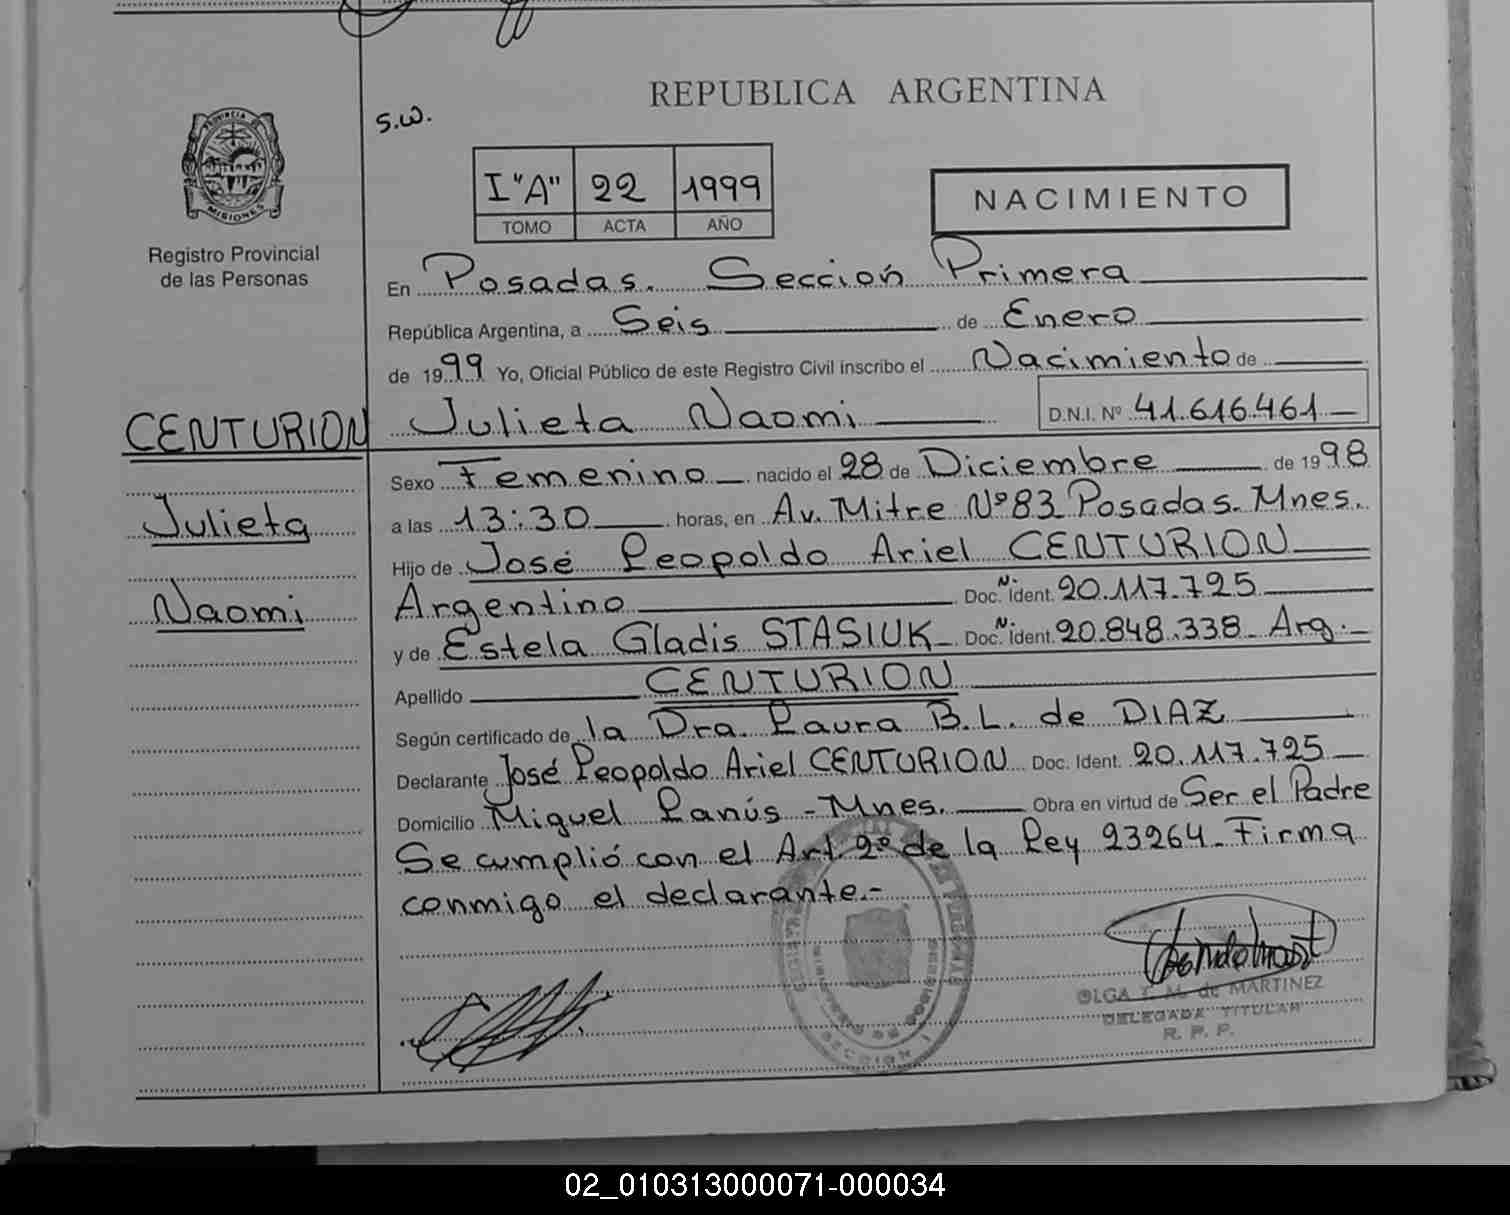 REPUBLICA ARGENTINA
S.W.
PROVINCIA DE
MISIONES
Registro Provincial
de las Personas
I "A" 22 1999
TOMO ACTA AÑO
NACIMIENTO
En Posadas. Sección Primera
República Argentina, a Seis de Enero
de 1999 Yo, Oficial Público de este Registro Civil inscribo el Nacimiento de
CENTURION
Julieta Naomi D.N.I. Nº 41.616.461
Julieta
Naomi
Sexo Femenino nacido el 28 de Diciembre de 1998
a las 13:30 horas, en Av. Mitre Nº 83 Posadas. Mnes.
Hijo de José Leopoldo Ariel CENTURION
Argentino Doc. N. Ident. 20.117.725
y de Estela Gladis STASIUK Doc. N. Ident. 20.848.338 Arg.
Apellido CENTURION
Según certificado de la Dra. Laura B.L. de DIAZ
Declarante José Leopoldo Ariel CENTURION Doc. Ident. 20.117.725
Domicilio Miguel Lanús - Mnes. Obra en virtud de Ser el Padre
Se cumplió con el Art. 2º de la Ley 23264. Firma
conmigo el declarante.-
MINISTERIO DE GOBIERNO
SECCION I
OLGA de MARTINEZ
DELEGADA TITULAR
R. P. P.
02_010313000071-000034